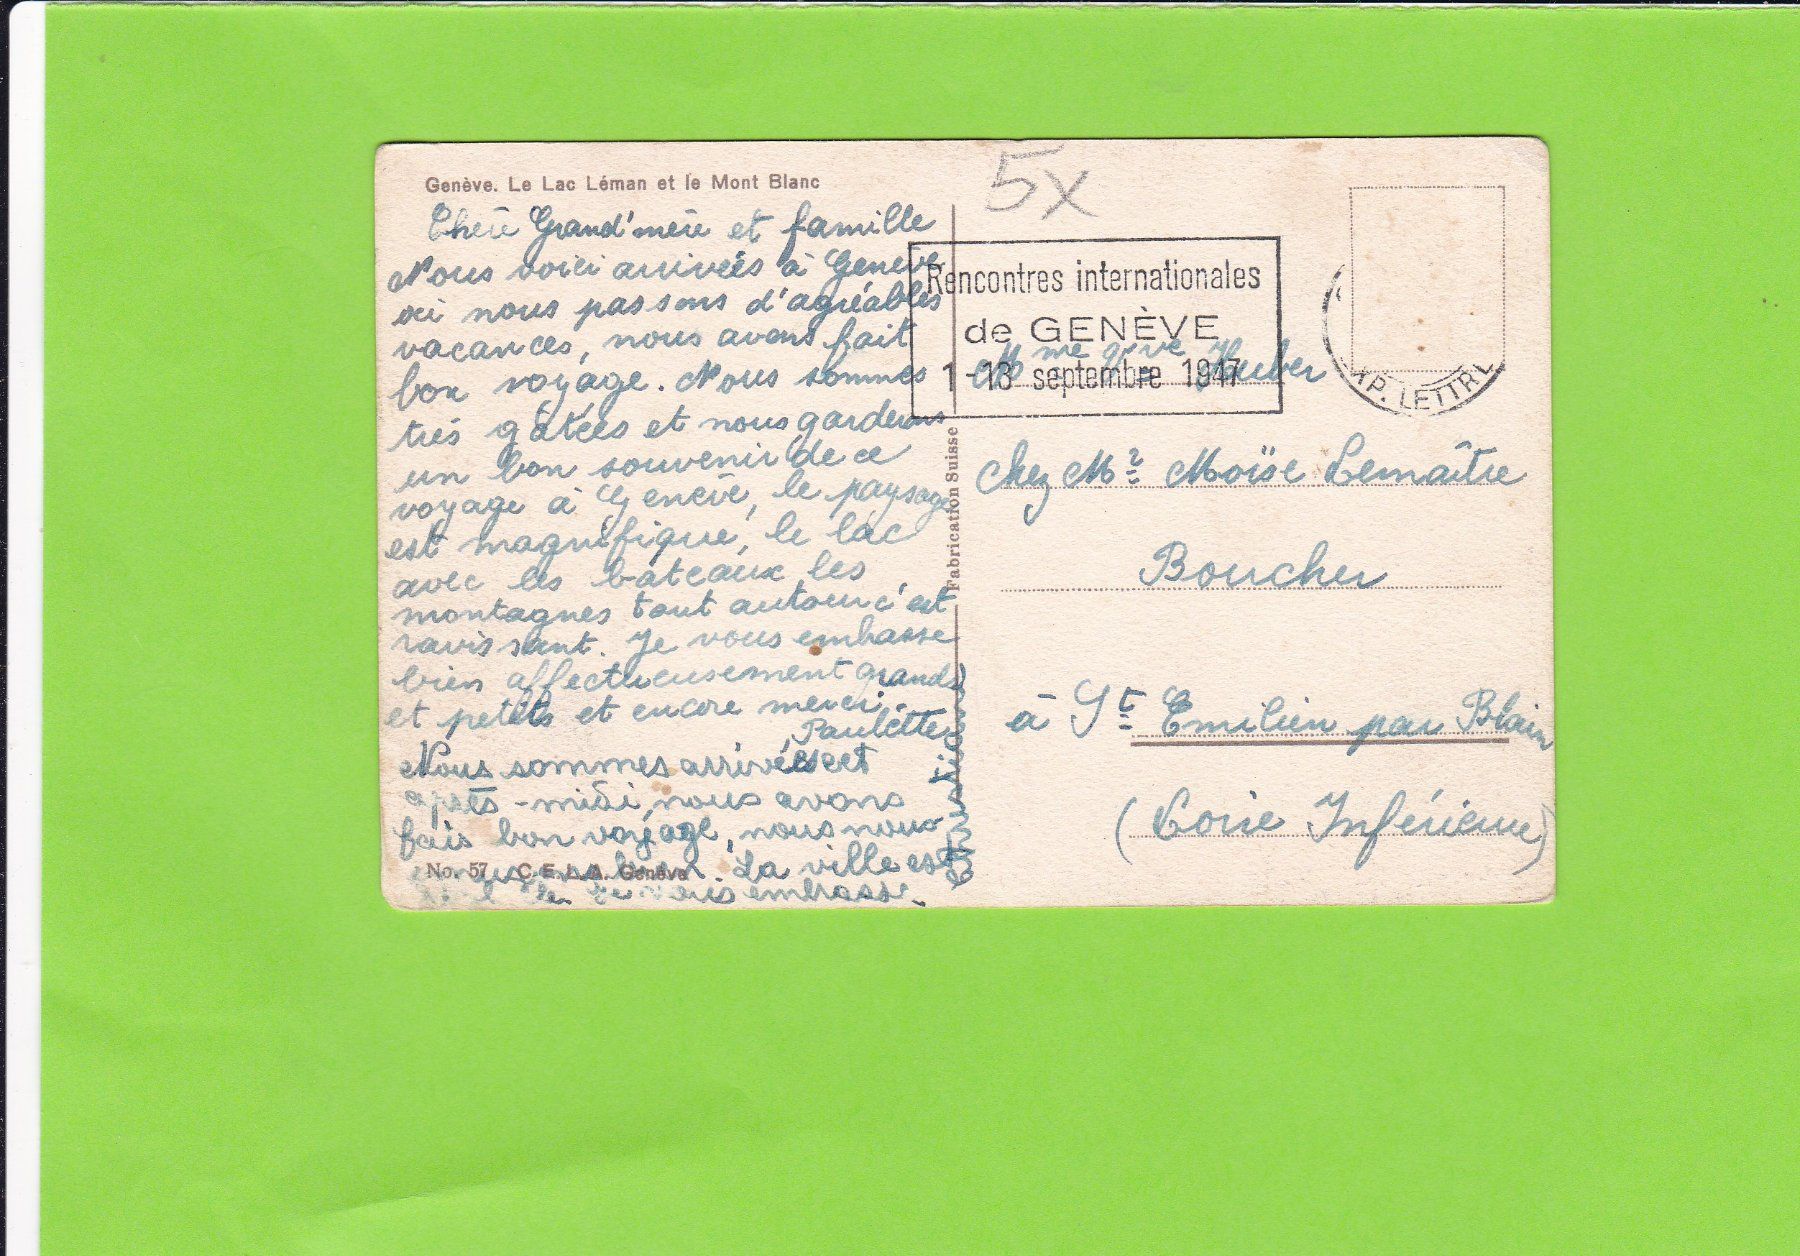 Genève. Le Lac Léman et le Mont Blanc
5x
Chère Grand'mère et famille
Nous voici arrivées à Genève
où nous passons d'agréables
vacances, nous avons fait
bon voyage. Nous sommes
très gâtées et nous garderons
un bon souvenir de ce
voyage à Genève, le paysage
est magnifique, le lac
avec les bateaux, les
montagnes tout autour c'est
ravissant. Je vous embrasse
bien affectueusement grands
et petits et encore merci.
Paulette
Nous sommes arrivées cet
après-midi, nous avons
fais bon voyage, nous nous
bien. La ville est
Je vous embrasse.
Christiane
No. 57 C.E.L.A. Genève
Fabrication Suisse
Rencontres internationales
de GENÈVE
1-13 septembre 1947
EXP. LETTRE
Mme Vve Huber
chez Mr Moïse Lemaître
Boucher
à St Emilien par Blain
(Loire Inférieure)